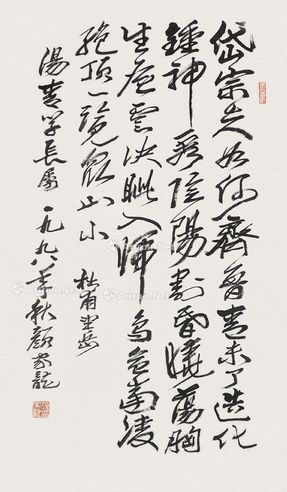 岱宗夫如何齊魯青未了造化
鍾神秀陰陽割昏曉蕩胸
生層雲決眦入歸鳥會當凌
絕頂一覽眾山小 杜甫望岳
湯青學長屬 一九九八年秋顏家龍